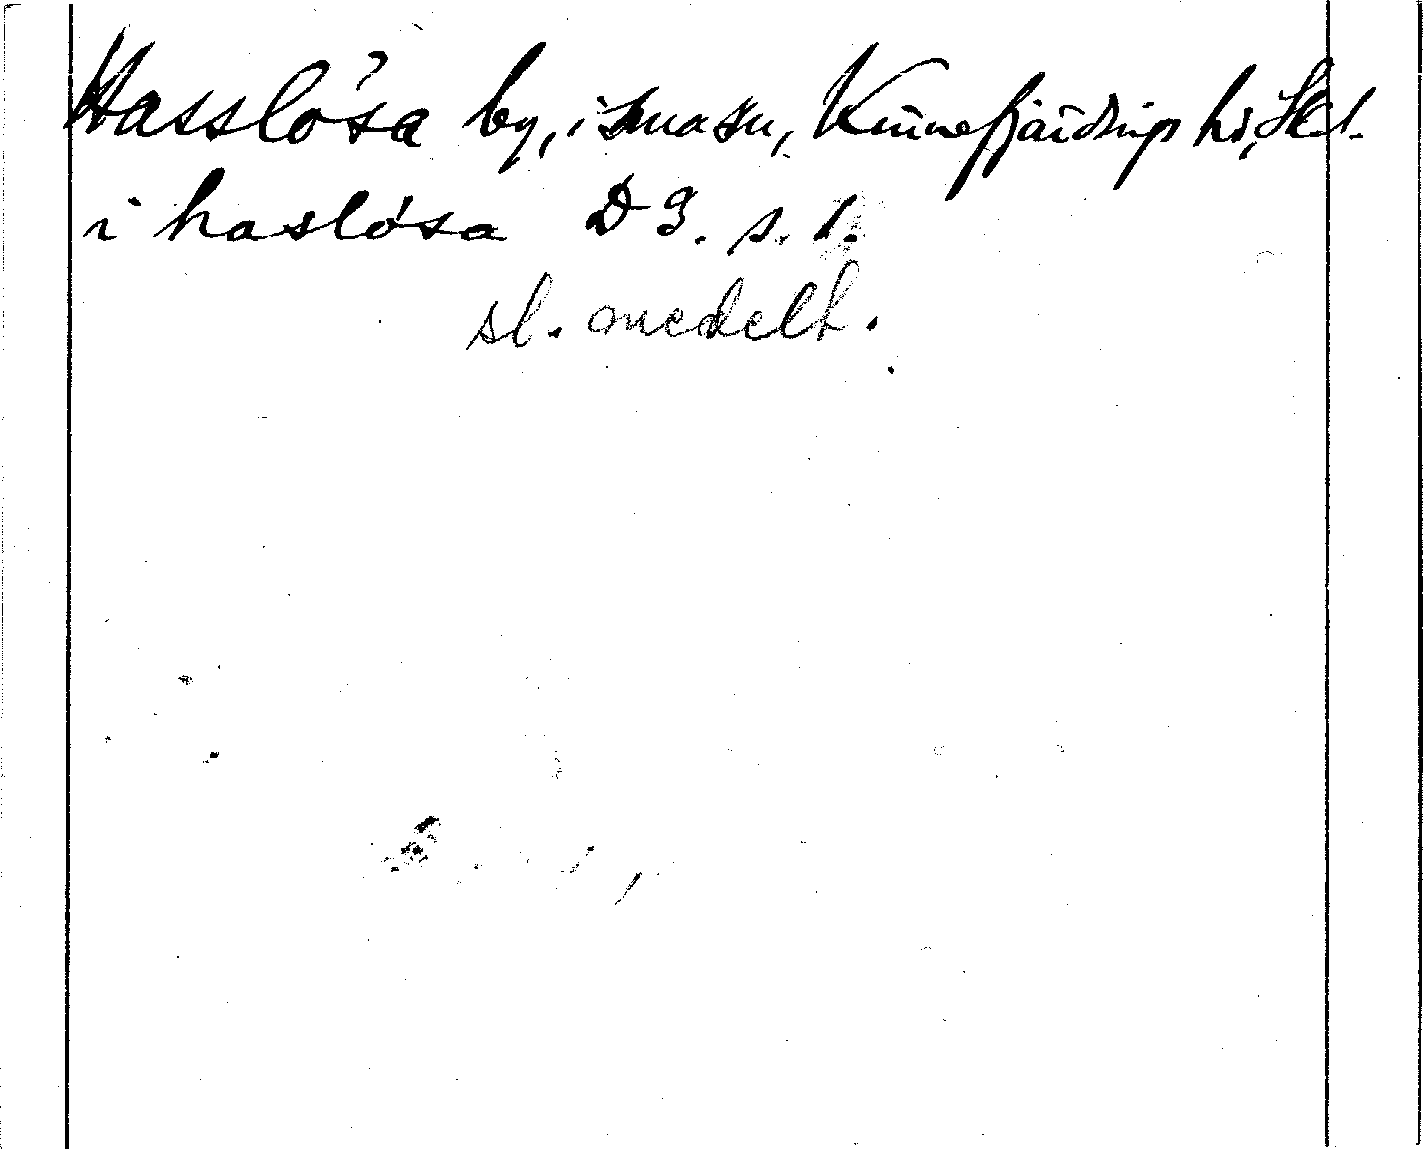 Hasslösa by, i smasn, Kinnefjärdings hd, Skbl.
i haslósa D 9. s. 1.
sl. medelt.